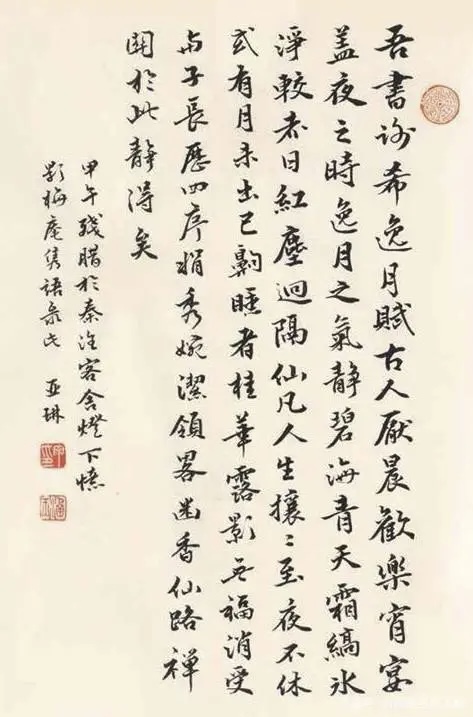 吾書謝希逸月賦古人厭晨歡樂宵宴
盖夜之時逸月之氣靜碧海青天霜縞氷
淨較赤日紅塵迥隔仙凡人生攘〻至夜不休
或有月未出已齁睡者桂華露影无福消受
与子長歷四序娟秀婉潔領畧幽香仙路禅
關於此靜得矣
甲午殘腊於秦淮客舍燈下憶
影梅庵隽語录此 亚琳